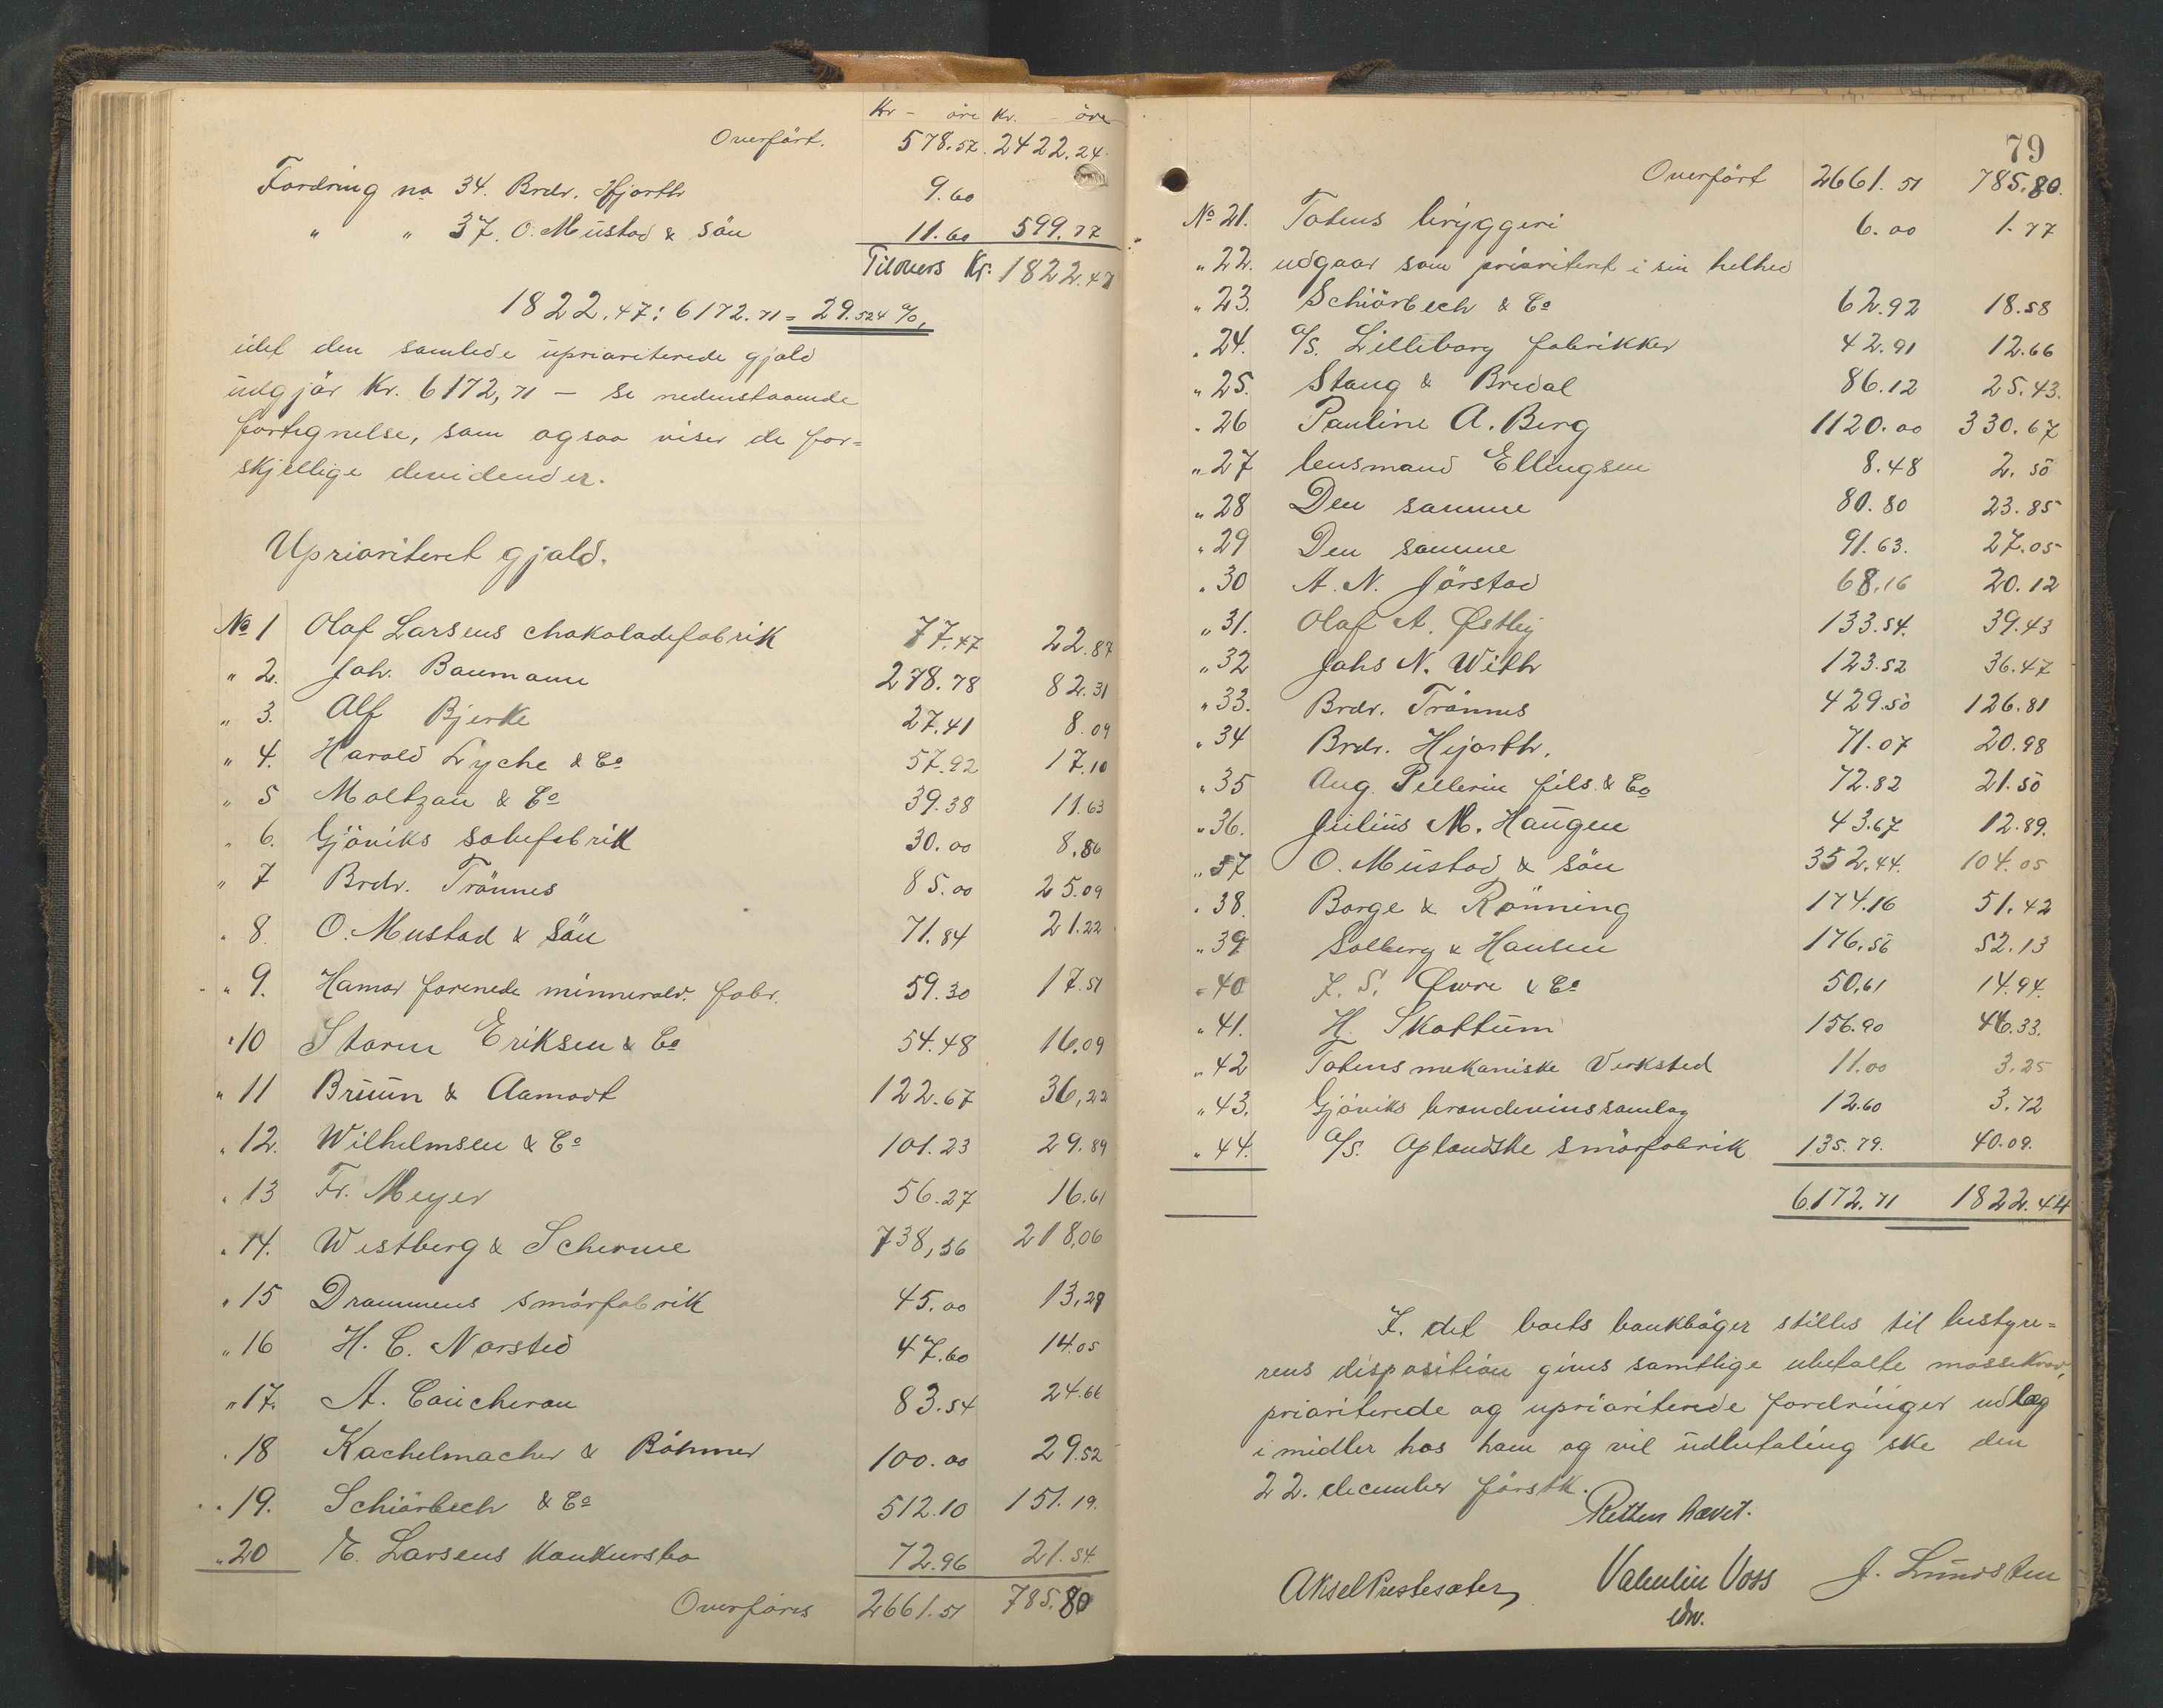 Kr - öre Kr. - öre
Overfört. 578.57. 2422.24.
Fordring no 34. Brdr. Hjorth 9.60
" " 37. O. Mustad & sön 11.60 599.77
Tilovers Kr. 1822.47
1822.47 : 6172.71 = 29.524 %,
idet den samlede uprioriterede gjæld
udgjör Kr. 6172,71 — se nedenstaaende
fortegnelse, som ogsaa viser de for=
skjellige devidender.
Uprioriteret gjæld.
No 1 Olaf Larsens chokoladefabrik 77.47 22.87
" 2. Joh. Baumann 278.78 82.31
" 3. Alf Bjerke 27.41 8.09
" 4. Harald Lyche & Co 57.92 17.10
" 5 Moltzau & Co 39.38 11.63
" 6. Gjöviks sæbefabrik 30.00 8.86
" 7 Brdr. Trönnes 85.00 25.09
" 8. O. Mustad & sön 71.84 21.22
" 9. Hamar forenede minneralv. fabr. 59.30 17.51
" 10 Storm Eriksen & Co 54.48 16.09
" 11 Bruun & Aamodt 122.67 36,22
" 12. Wilhelmsen & Co 101.23 29.89
" 13 Fr. Meyer 56.27 16.61
" 14. Westberg & Scherme 738,56 218,06
" 15 Drammens smörfabrik 45.00 13,29
" 16 H. C. Narsted 47.60 14.05
" 17. A. Caucheron 83.54 24.66
" 18 Kachelmacher & Böhmer 100.00 29.52
" 19. Schiörbech & Co 512.10 151.19.
" 20 E. Larsens konkursbo 72.96 21.54.
Overföres 2661.51 785.80
79
Overfört 2661.51 785.80.
No 21. Totens bryggeri 6.00 1.77
" 22. udgaar som prioriteret i sin helhed
" 23. Schiörbech & Co 62.92 18.58
" 24. A/S. Lilleborg fabrikker 42.91 12.66
" 25. Stang & Bredal 86.12 25.43.
" 26 Pauline A. Berg 1120.00 330.67
" 27 lensmand Ellingsen 8.48 2.50
" 28 Den samme 80.80 23.85
" 29 Den samme 91.63. 27.05
" 30 A. N. Jörstad 68.16 20.12
" 31. Olaf A. Østby 133.54. 39.43
" 32 Johs N. With 123.52 36.47
" 33. Brdr. Trönnes 429.50 126.81
" 34 Brdr. Hjorth. 71.07 20.98
" 35 Aug. Pellerin fils. & Co 72.82 21.50
" 36. Julius M. Haugen 43.67 12.89.
" 37 O. Mustad & sön 352.44. 104.05
" 38. Borge & Rönning 174.16 51.42
" 39 Solberg & Hansen 176.56 52.13
" 40 F. S. Øwre & Co 50.61 14.94.
" 41. H. Skattum 156.90 46.33.
" 42 Totens mekaniske Verksted 11.00 3.25
" 43. Gjöviks brændevinssamlag 12.60 3.72
" 44. A/S. Oplandske smörfabrik 135.79. 40.09.
6172.71 1822.44
I. det boets bankböger stilles til bestyre=
rens disposition gives samtlige ubetalte massekrav,
prioriterede og uprioriterede fordringer udlæg
i midler hos ham og vil udbetaling ske den
22. december förstk.
Retten hævet.
Aksel Prestesæter, Valentin Voss J. Lundsten
edv.